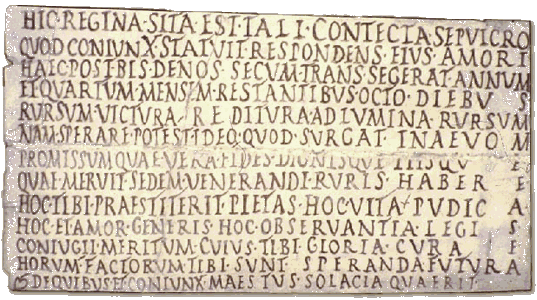 HIC·REGINA·SITA·EST·TALI·CONTECTA·SEPVLCRO
QVOD·CONIVNX·STATVIT·RESPONDENS·EIVS·AMORI
HAEC·POST·BIS·DENOS·SECVM·TRANSEGERAT·ANNVM
ET·QVARTVM·MENSEM·RESTANTIBVS·OCTO·DIEBVS
RVRSVM·VICTVRA·REDITVRA·AD·LVMINA·RVRSVM
NAM·SPERARE·POTEST·IDEO·QVOD·SVRGAT·IN·AEVOM
PROMISSVM·QVAE·VERA·FIDES·DIGNISQVE·PIISQVE
QVAE·MERVIT·SEDEM·VENERANDI·RVRIS·HABERE
HOC·TIBI·PRAESTITERIT·PIETAS·HOC·VITA·PVDICA
HOC·ET·AMOR·GENERIS·HOC·OBSERVANTIA·LEGIS
CONIVGII·MERITVM·CVIVS·TIBI·GLORIA·CVRAE
HORVM·FACTORVM·TIBI·SVNT·SPERANDA·FVTVRA
DE·QVIBVS·ET·CONIVNX·MAESTVS·SOLACIA·QVAERIT